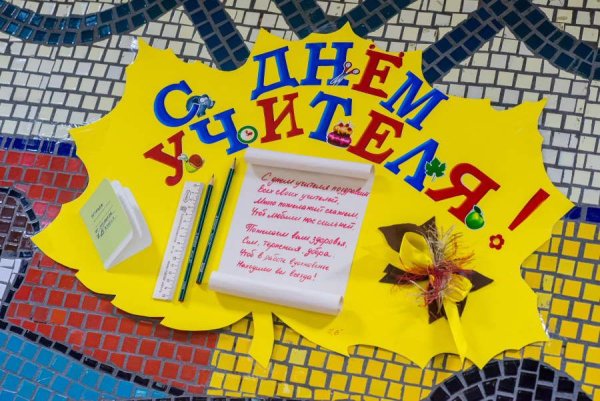 С ДНЁМ
УЧИТЕЛЯ!
С днем учителя поздравим
Всех своих учителей,
Много пожеланий скажем,
Чтоб любили нас сильней.
Пожелаем вам здоровья,
Сил, терпения, добра.
Чтоб в работе вдохновенье
Находили вы всегда!